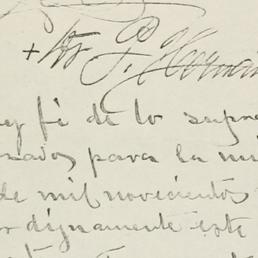 + Fr. P. Hernán
ey fé de lo supre
nados para la mi
de mil novecientos
r dignamente este